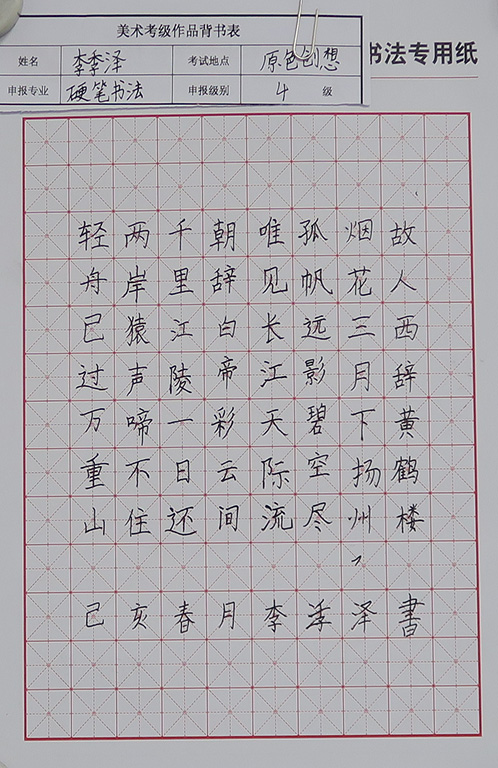 美术考级作品背书表
姓名 李季泽 考试地点 原色创想
申报专业 硬笔书法 申报级别 4 级
书法专用纸
故人西辞黄鹤楼
烟花三月下扬州
孤帆远影碧空尽
唯见长江天际流
朝辞白帝彩云间
千里江陵一日还
两岸猿声啼不住
轻舟已过万重山
己亥春月李季泽書